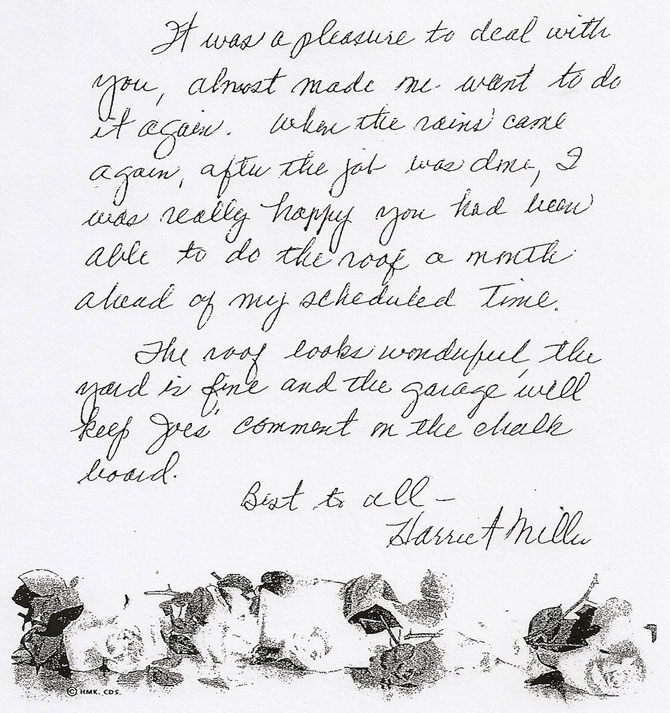 It was a pleasure to deal with
you, almost made me want to do
it again. When the rains came
again, after the job was done, I
was really happy you had been
able to do the roof a month
ahead of my scheduled time.
The roof looks wonderful, the
yard is fine and the garage will
keep Joes' comment on the chalk
board.
Best to all –
Harriet Miller
© HMK. CDS.